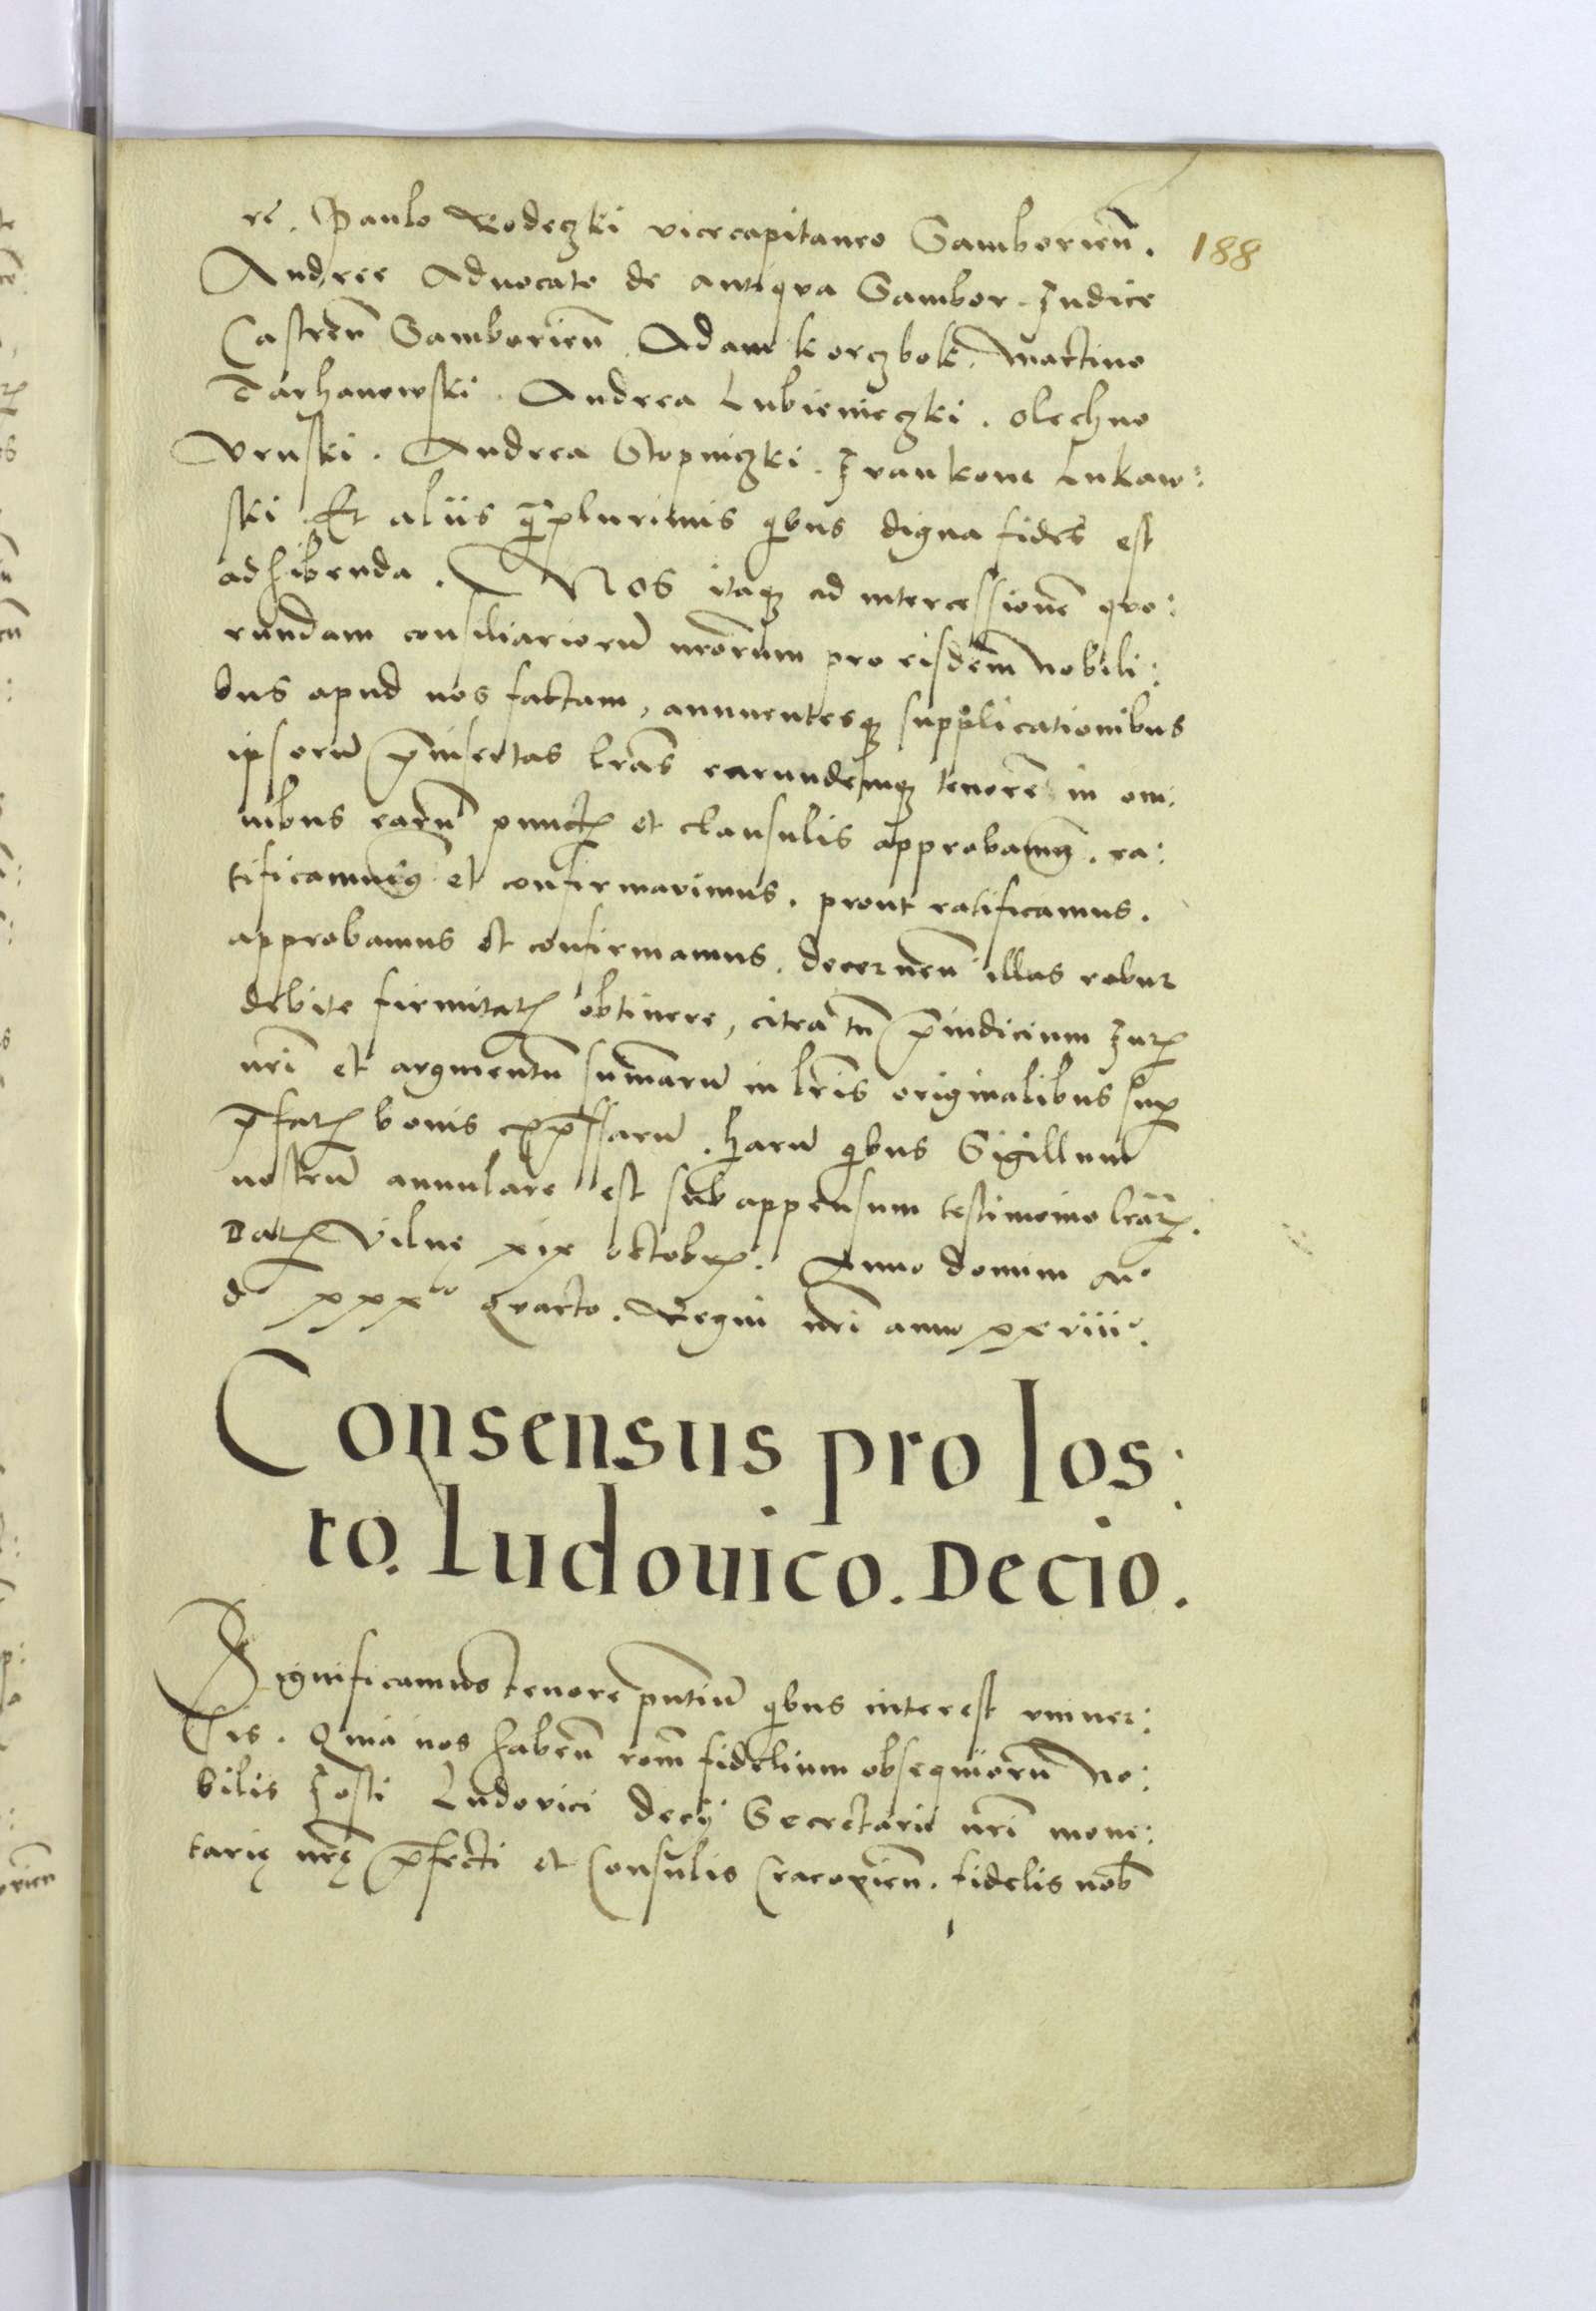 re. Paulo Rodeczki vicecapitaneo Samborień.
188
Andree Aduocato de antiqua Sambor. Judice
Castreń Samborień. Adam korczbok. Martino
Tarhanowski. Andrea Lubienieczki. olechno
Vruski. Andrea Stopniczki. Ivankone Lukaw:
ski. Et aliis q̄mplurimis q̇bus digna fides est
adhibenda. Nos itaqꝫ ad intercessionē quo:
rundam consiliariorū nr̄orum pro eisdem Nobili:
bus apud nos factam, annuentesqꝫ supplicationibus
ipsorū p̄insertas lr̄as earundemqꝫ tenorē in om:
nibus earū punctꝭ et clausulis approbamꝰ. ra:
tificamusqꝫ et confirmauimus. prout ratificamus.
approbamus et confirmamus. decerneñ illas robur
debite firmitatꝭ obtinere, citra tn̄ p̄iudicium Jurꝭ
nr̄i et argumentū sum̄arū in lr̄is originalibus suꝑ
p̄fatꝭ bonis exp̄ssarū. harū q̇bus Sigillum
nostrū annulare est subappensum testimonio lr̄arꝭ.
Datꝭ Vilnę xix octobrꝭ. Anno domini Mº
dº xxxto quarto. Regni nr̄i anno xxviiiº.
Consensus pro Ios:
to. Ludouico. Decio.
Significamus tenore pn̄tiū q̇bus interest vniuer:
sis. Quia nos habeñ rōm fidelium obsequiorū No:
bilis Josti Ludovici decij Secretarii nr̄i mone:
tarię nr̄ę p̄fecti et Consulis Cracovień. fidelis nob̄